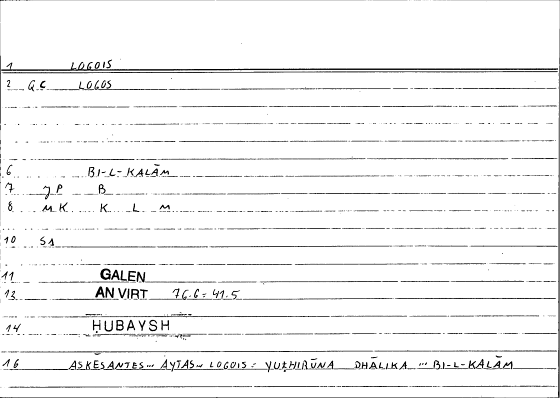 1 LOGOIS
2 GC LOGOS
6 BI-L-KALĀM
7 JP B
8 MK K L M
10 S1
11 GALEN
13 AN VIRT 76.6 = 41.5
14 HUBAYSH
16 ASKĒSANTES... AYTAS... LOGOIS = YUẒHIRŪNA DHĀLIKA ... BI-L-KALĀM